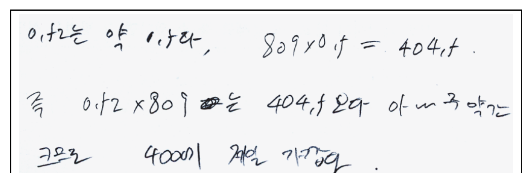 0.52는 약 0.5다, 809×0.5 = 404.5.
즉 0.52×809는 404.5보다 아주 약간
크므로 400에 제일 가깝다.